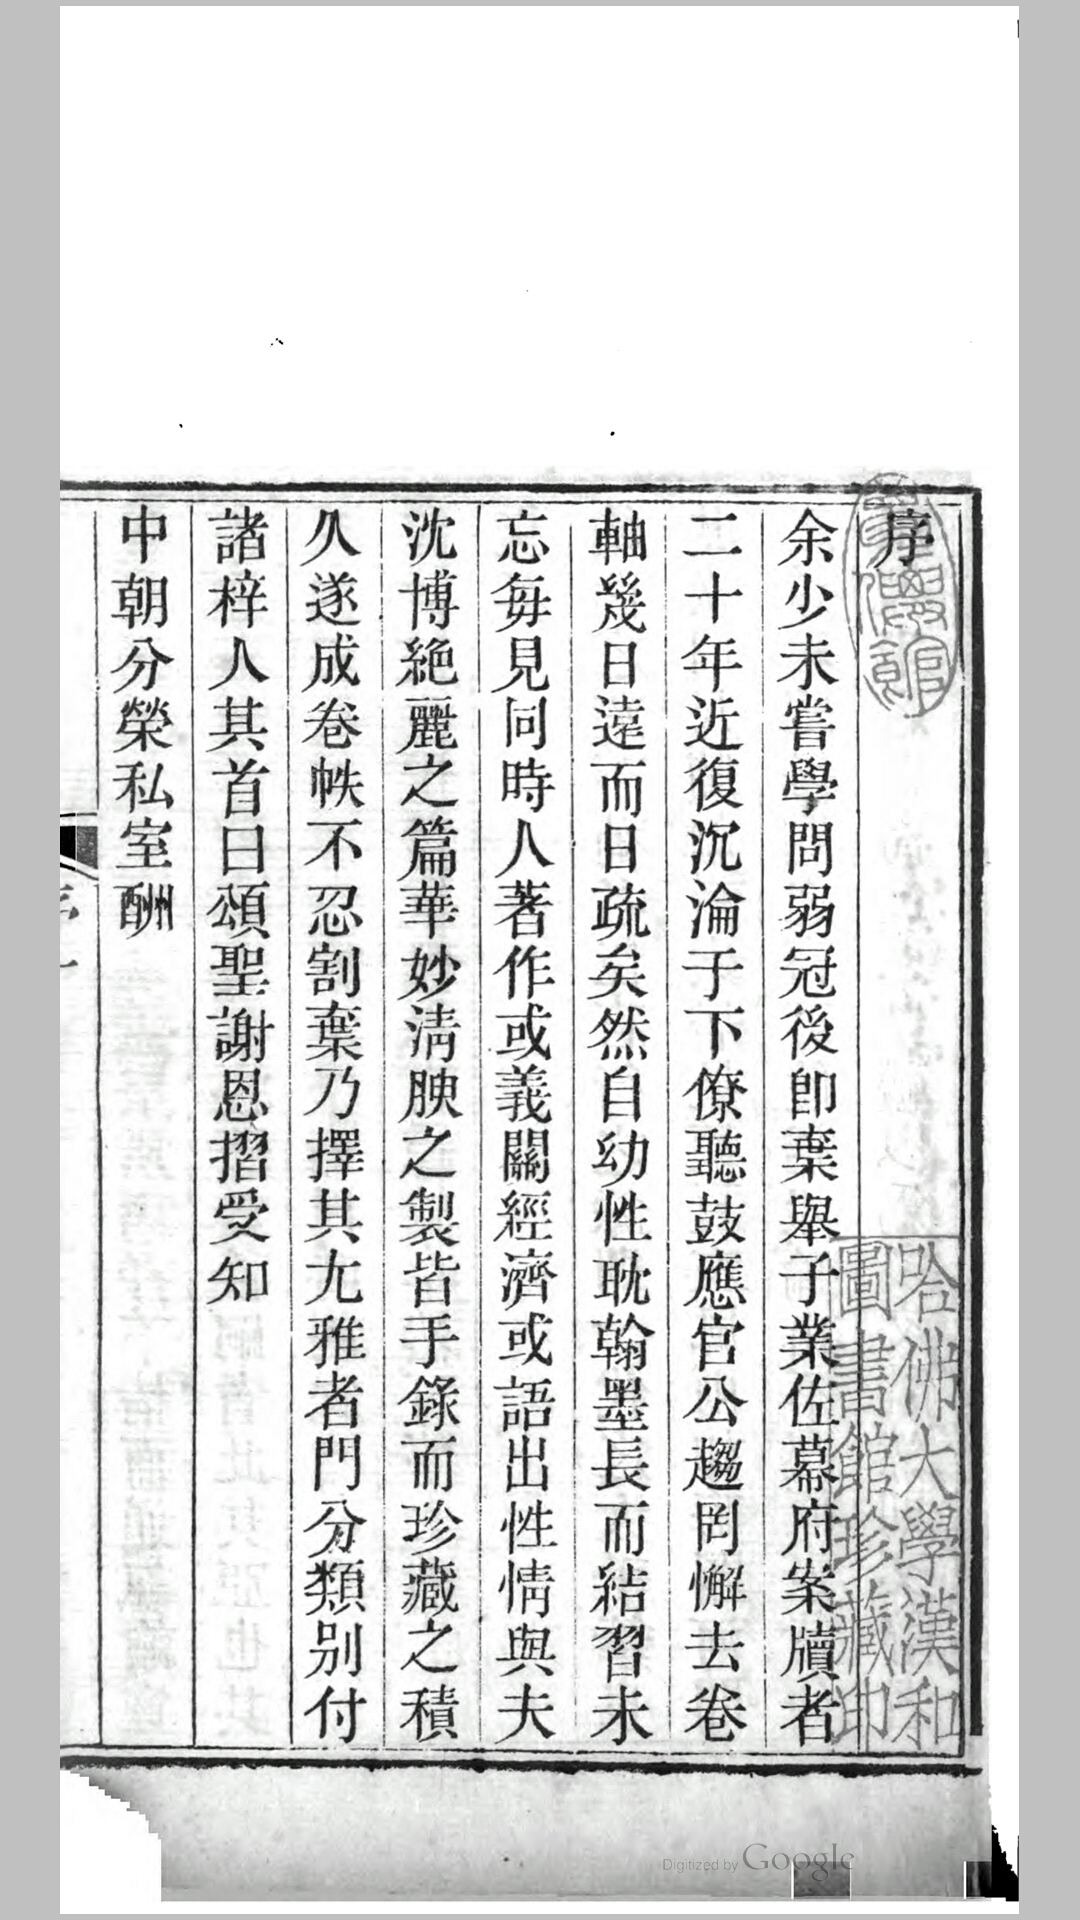 序
余少未嘗學問弱冠後卽棄舉子業佐幕府案牘者
二十年近復沉淪于下僚聽鼓應官公趨罔懈去卷
軸幾日遠而日疏矣然自幼性耽翰墨長而結習未
忘每見同時人著作或義關經濟或語出性情與夫
沈博絕麗之篇華妙淸腴之製皆手錄而珍藏之積
久遂成卷帙不忍割棄乃擇其尤雅者門分類別付
諸梓人其首曰頌聖謝恩摺受知
中朝分榮私室酬
哈佛大學漢和
圖書館珍藏印
Digitized by Google